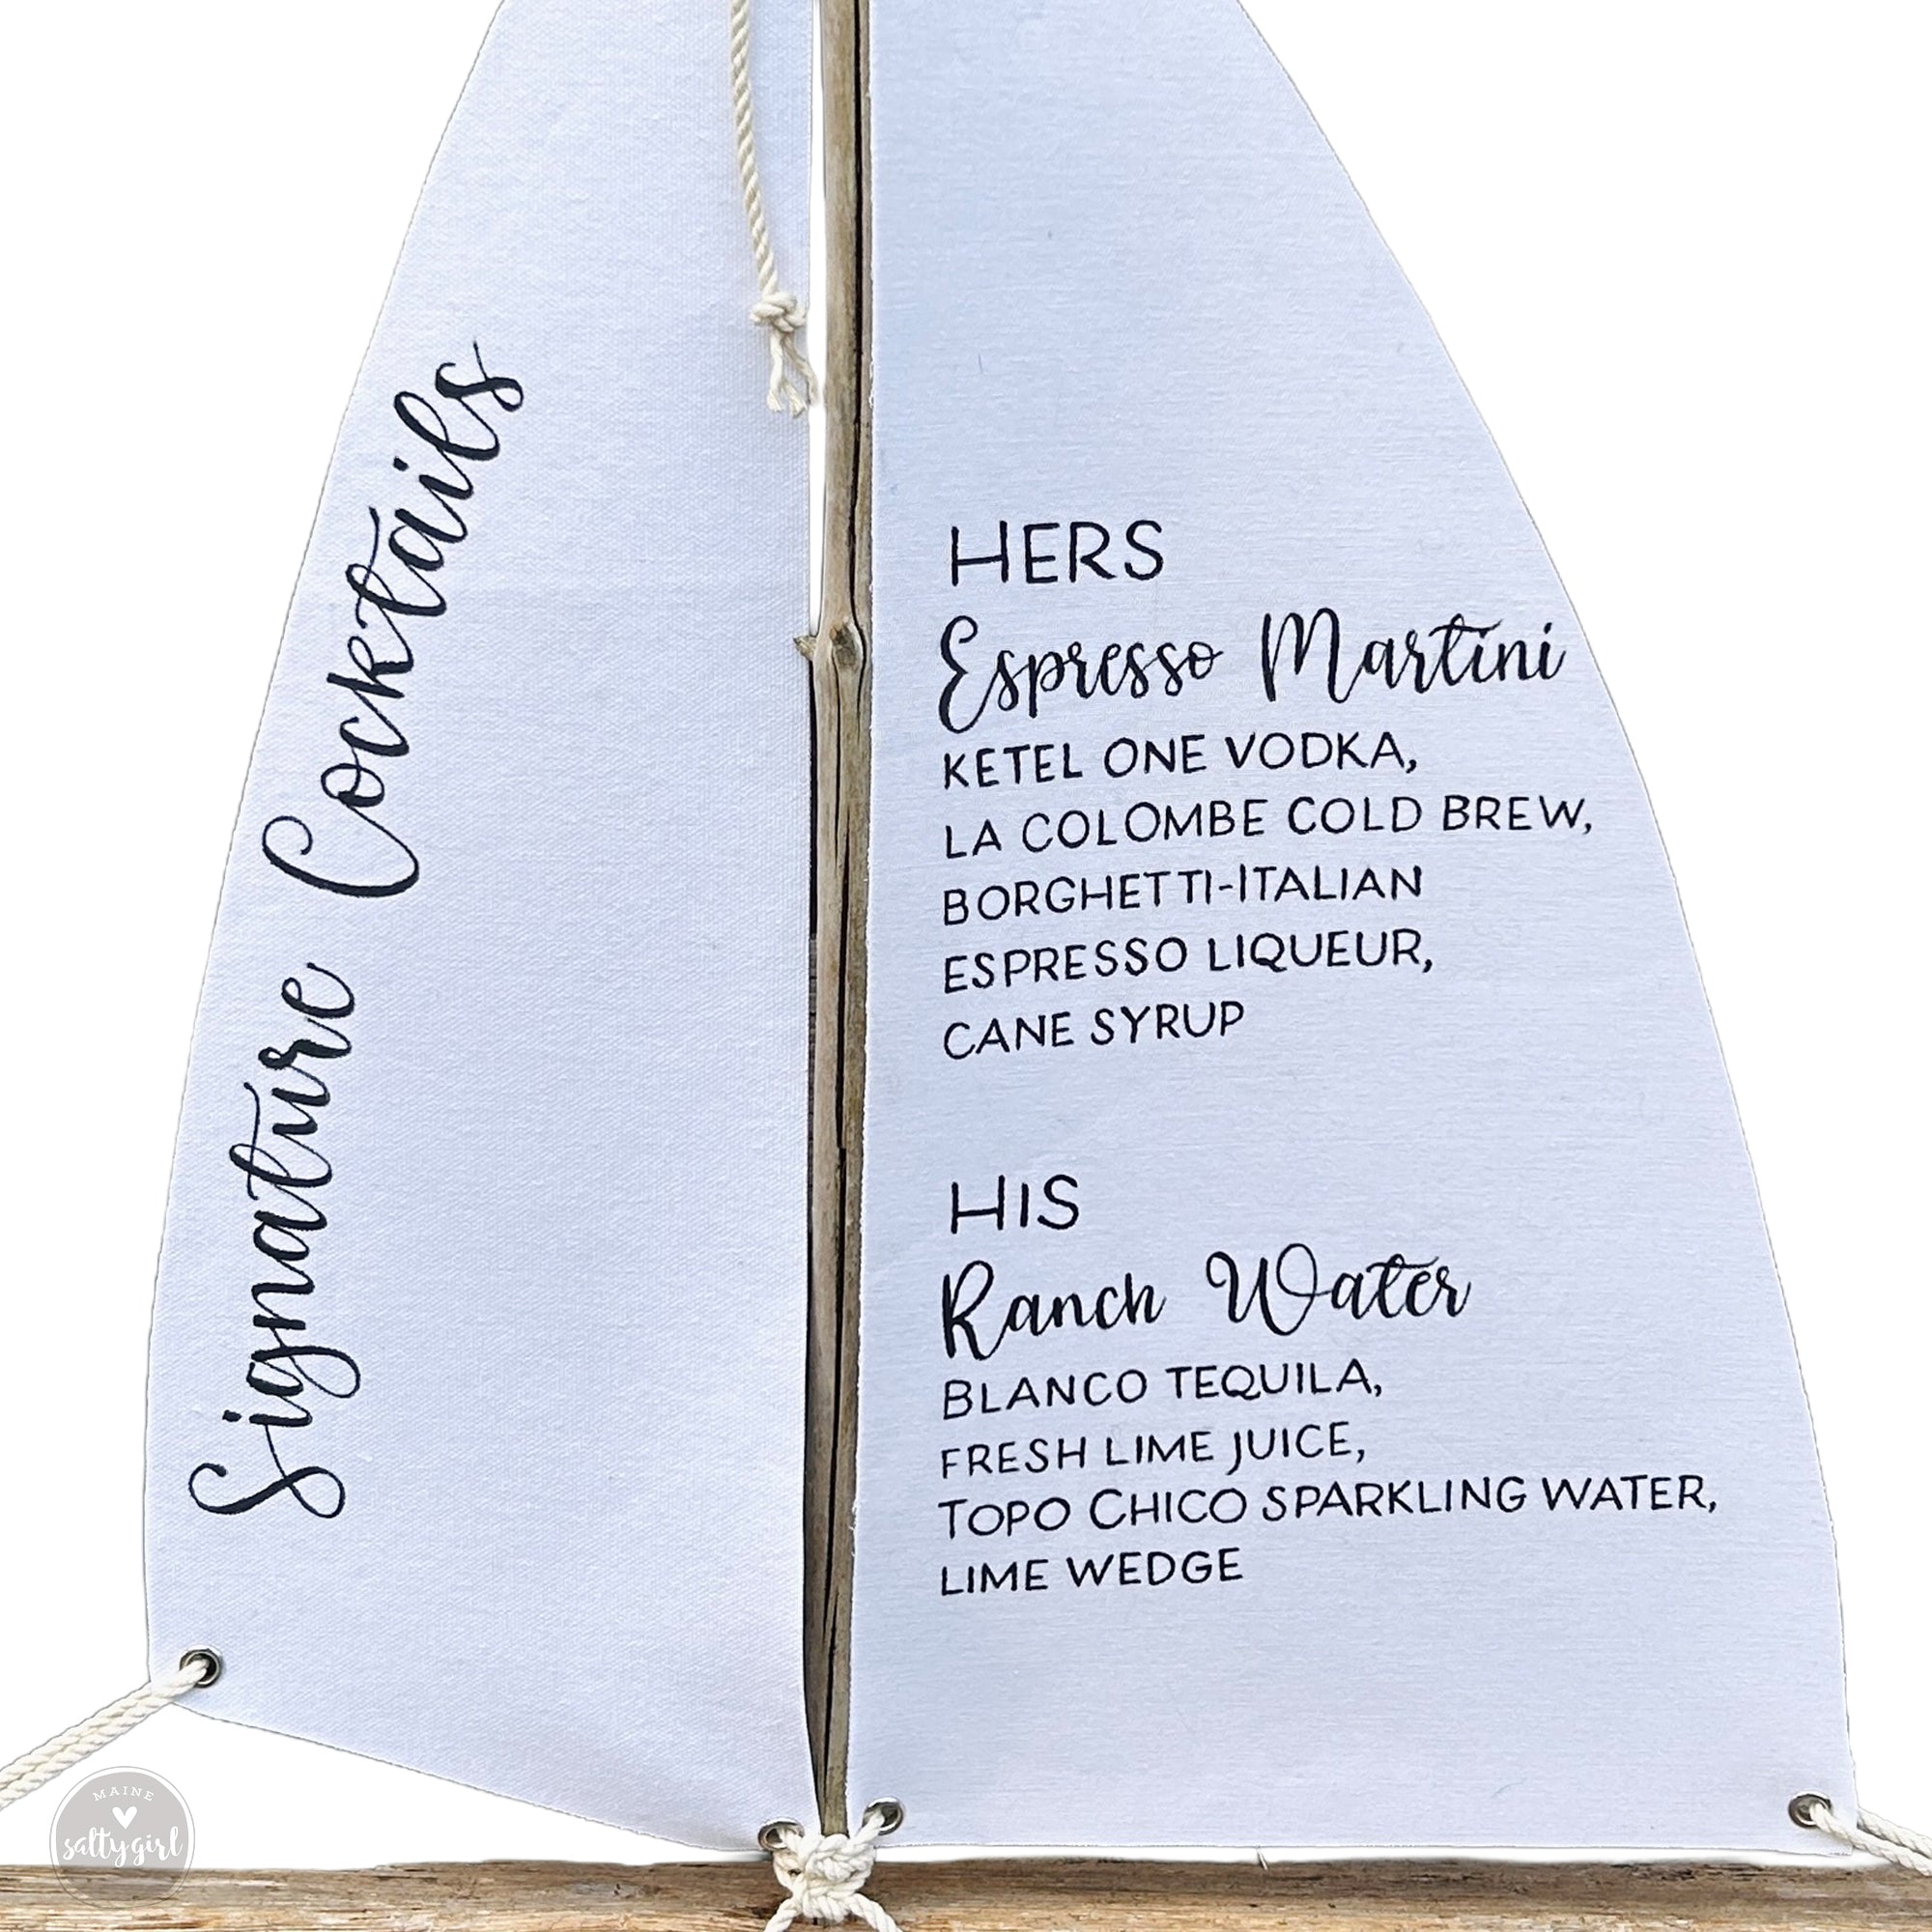 Signature Cocktails
HERS
Espresso Martini
KETEL ONE VODKA,
LA COLOMBE COLD BREW,
BORGHETTI-ITALIAN
ESPRESSO LIQUEUR,
CANE SYRUP
HIS
Ranch Water
BLANCO TEQUILA,
FRESH LIME JUICE,
TOPO CHICO SPARKLING WATER,
LIME WEDGE
MAINE
salty girl